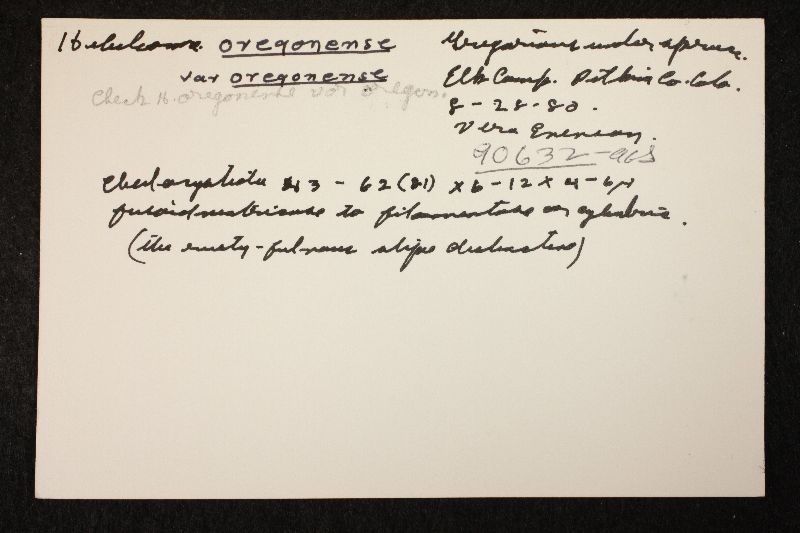 Hebeloma oregonense
var oregonense
Check H. oregonense var oregon.
Gregarious under spruce.
Elk Camp. Pitkin Co. Colo.
8-28-80.
Vera Evenson.
90632-AHS
Cheilocystidia 43 - 62 (81) x 6 - 12 x 4 - 6 µ
fusoid ventricose to filamentose or cylindric.
(the rusty-fulvous stipe distinctive)